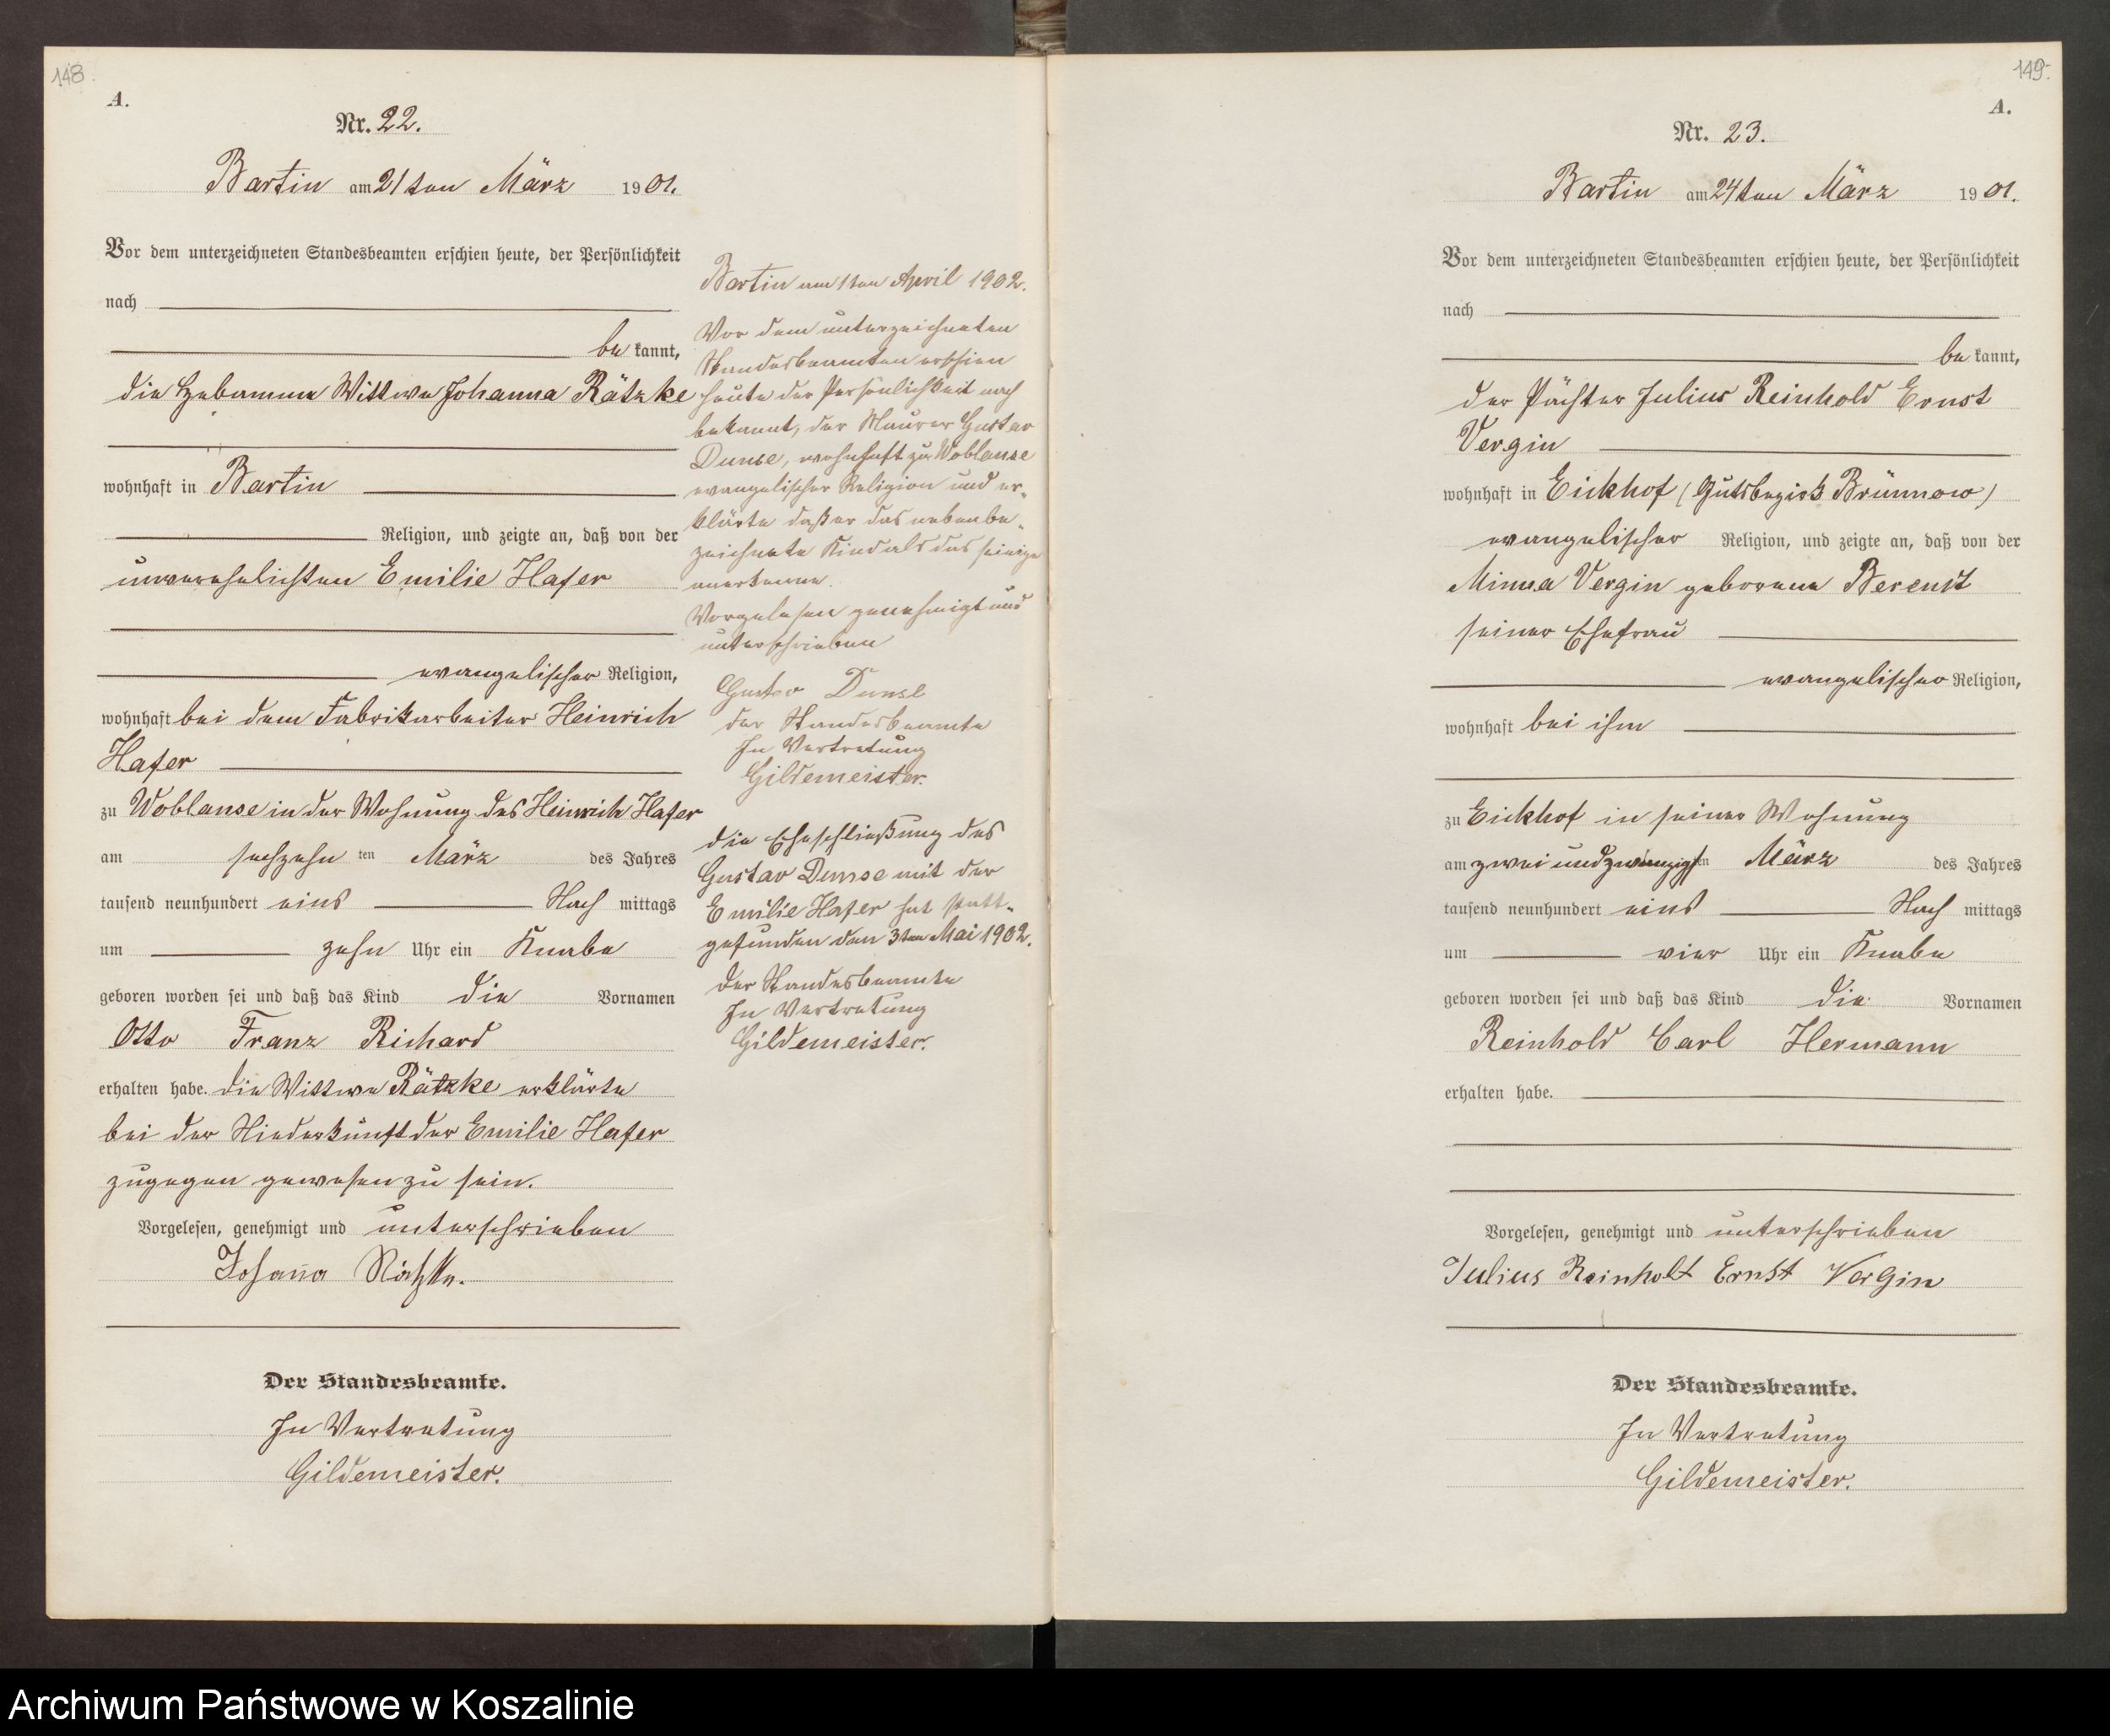 148.
A.
Nr. 22.
Bartin am 21 ten März 1901.
Vor dem unterzeichneten Standesbeamten erschien heute, der Persönlichkeit
nach
be kannt,
die Hebamme Wittwe Johanna Rätzke
wohnhaft in Bartin
Religion, und zeigte an, daß von der
unverehelichten Emilie Hafer
evangelischer Religion,
wohnhaft bei dem Fabrikarbeiter Heinrich
Hafer
zu Woblanse in der Wohnung des Heinrich Hafer
am sechzehn ten März des Jahres
tausend neunhundert eins Nach mittags
um zehn Uhr ein Knabe
geboren worden sei und daß das Kind die Vornamen
Otto Franz Richard
erhalten habe. Die Wittwe Rätzke erklärte
bei der Niederkunft der Emilie Hafer
zugegen gewesen zu sein.
Vorgelesen, genehmigt und unterschrieben
Johanna Rätzke.
Der Standesbeamte.
In Vertretung
Gildemeister.
Bartin am 1ten April 1902.
Vor dem unterzeichneten
Standesbeamten erschien
heute der Persönlichkeit nach
bekannt, der Maurer Gustav
Dunse, wohnhaft zu Woblanse
evangelischer Religion und er-
klärte daß er das nebenbe-
zeichnete Kind als das seinige
anerkenne.
Vorgelesen genehmigt und
unterschrieben
Gustav Dunse
der Standesbeamte
In Vertretung
Gildemeister.
Die Eheschließung des
Gustav Dunse mit der
Emilie Hafer hat statt-
gefunden den 3ten Mai 1902.
Der Standesbeamte
In Vertretung
Gildemeister.
149.
A.
Nr. 23.
Bartin am 24 ten März 1901.
Vor dem unterzeichneten Standesbeamten erschien heute, der Persönlichkeit
nach
be kannt,
der Pächter Julius Reinhold Ernst
Vergin
wohnhaft in Eickhof (Gutsbezirk Brünnow)
evangelischer Religion, und zeigte an, daß von der
Minna Vergin geborene Berendt
seiner Ehefrau
evangelischer Religion,
wohnhaft bei ihm
zu Eickhof in seiner Wohnung
am zwei und zwanzigsten März des Jahres
tausend neunhundert eins Nach mittags
um vier Uhr ein Knabe
geboren worden sei und daß das Kind die Vornamen
Reinhold Carl Hermann
erhalten habe.
Vorgelesen, genehmigt und unterschrieben
Julius Reinholt Ernst Vergin
Der Standesbeamte.
In Vertretung
Gildemeister.
Archiwum Państwowe w Koszalinie